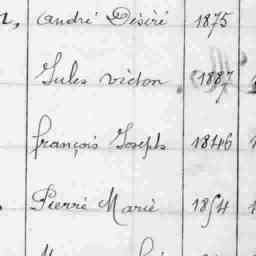 André Désiré 1875
Jules victor 1887
françois Joseph 1846
Pierre Marie 1854